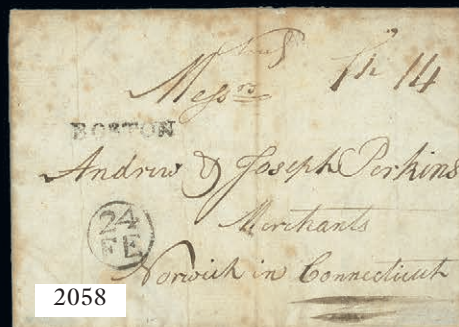 Messrs 14
BOSTON
Andrew & Joseph Perkins
24
FE
Merchants
Norwich in Connecticut
2058